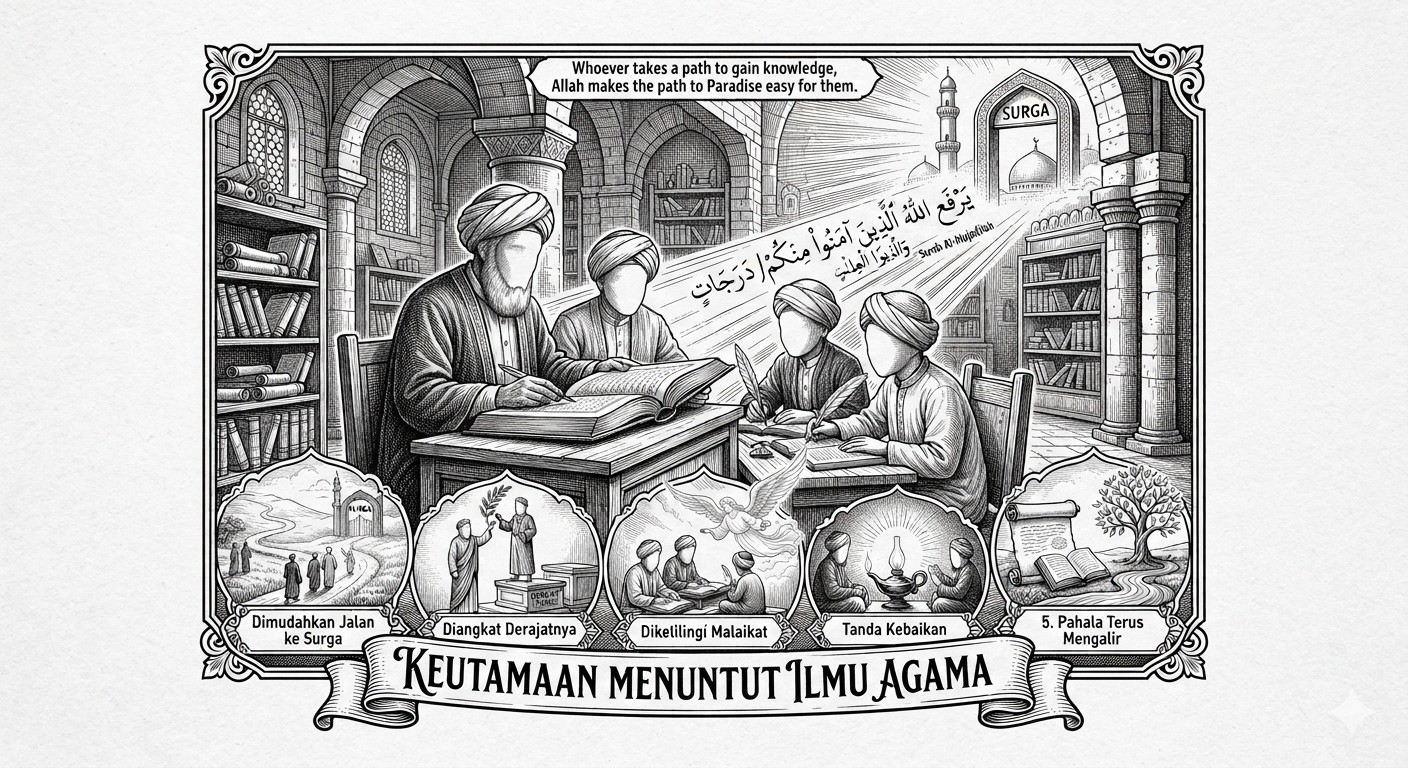 Whoever takes a path to gain knowledge,
Allah makes the path to Paradise easy for them.
SURGA
يَرْفَعِ اللَّهُ الَّذِينَ آمَنُوا۟ مِنكُمْ/ دَرَجَاتٍ
Dimudahkan Jalan
ke Surga
Diangkat Derajatnya
Dikelilingí Malaikat
Tanda Kebaikan
5. Pahala Terus
Mengalir
KEUTAMAAN MENUNTUT ILMU AGAMA